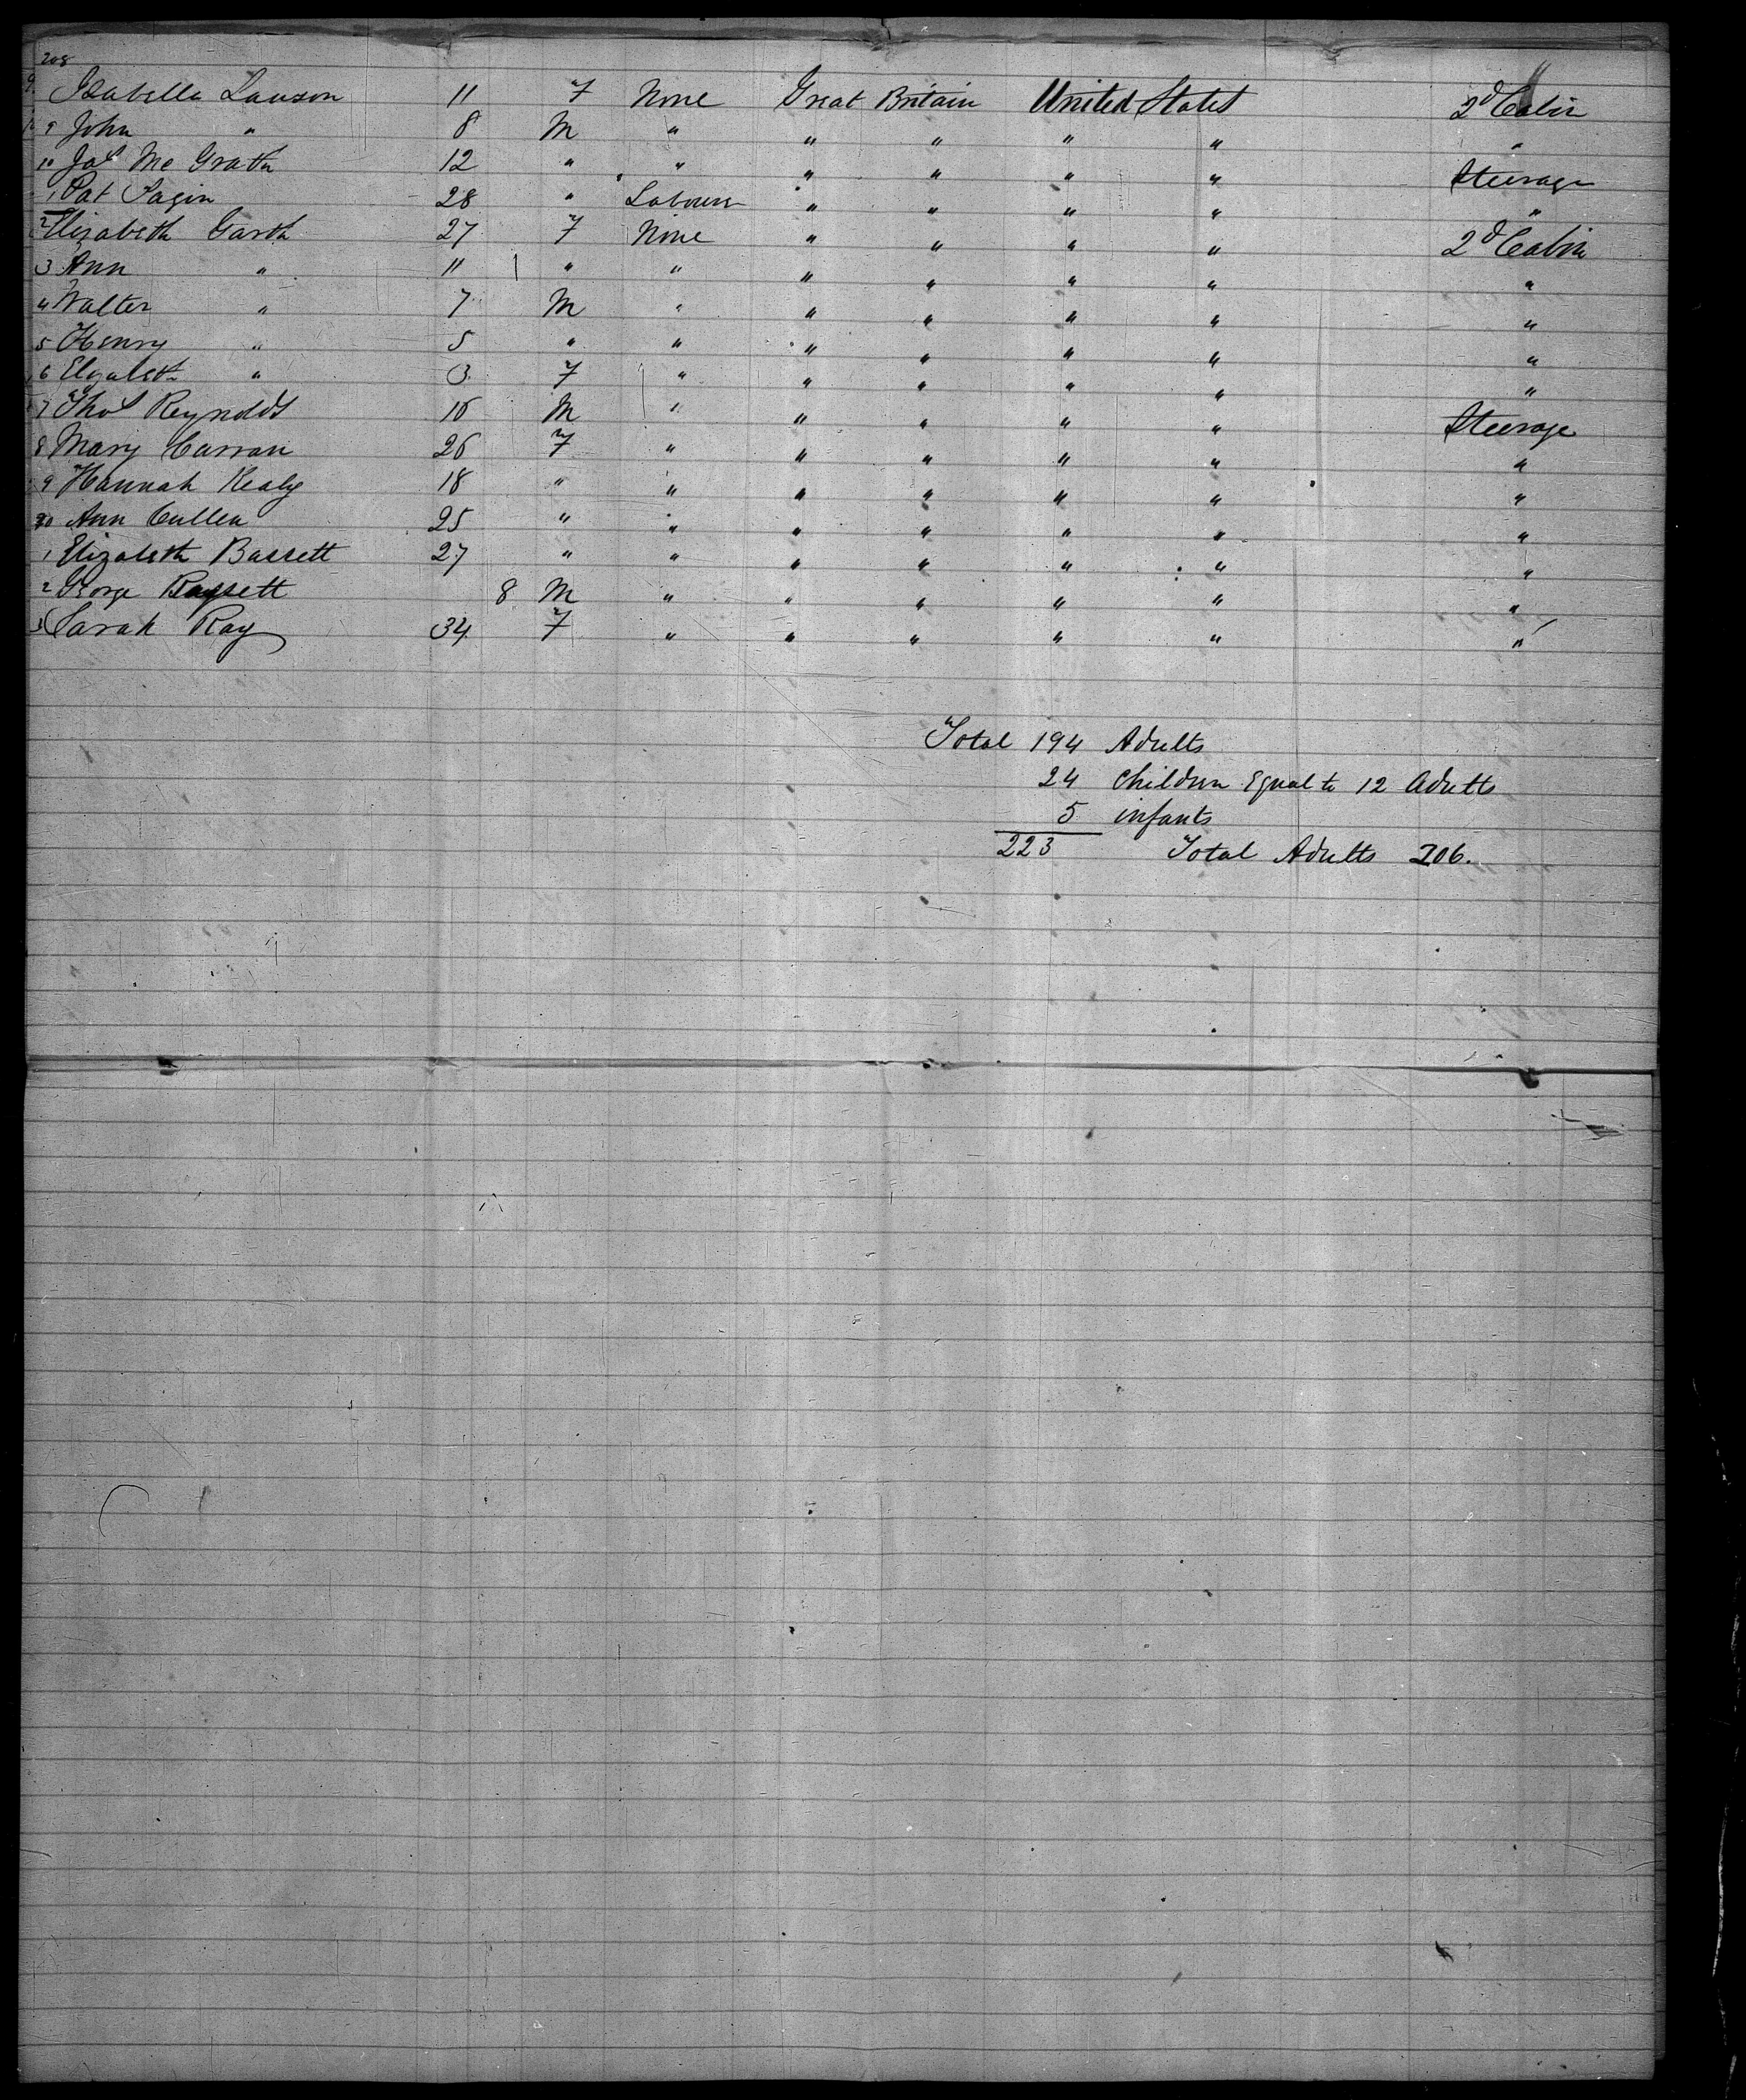 208
Isabella Lawson 11 F None Great Britain United States 2d Cabin
9 John " 8 M " " " " " "
10 Jas McGrath 12 " " " " " " Steerage
1 Pat 28 " Labourer " " " " "
2 Elizabeth Garth 27 F None " " " " 2d Cabin
3 Ann " 11 " " " " " " "
4 Walter " 7 M " " " " " "
5 Henry " 5 " " " " " " "
6 Elizabeth " 3 F " " " " " "
7 Thos Reynolds 16 M " " " " " Steerage
8 Mary Curran 26 F " " " " " "
9 Hannah Kealy 18 " " " " " " "
20 Ann Cullen 25 " " " " " " "
1 Elizabeth Bassett 27 " " " " " " "
2 George Bassett 8 M " " " " " "
3 Sarah Ray 34 F " " " " " "
Total 194 Adults
24 Children Equal to 12 Adults
5 infants
223 Total Adults 206.